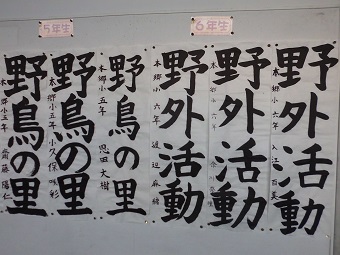 6年生
野外活動
本郷小 六年 入江 百美
野外活動
本郷小 六年
野外活動
本郷小 六年 渡辺 麻緒
5年生
野鳥の里
本郷小五年 恩田 大樹
野鳥の里
本郷小五年 小久保 咲彩
野鳥の里
本郷小五年 齋藤 陽仁